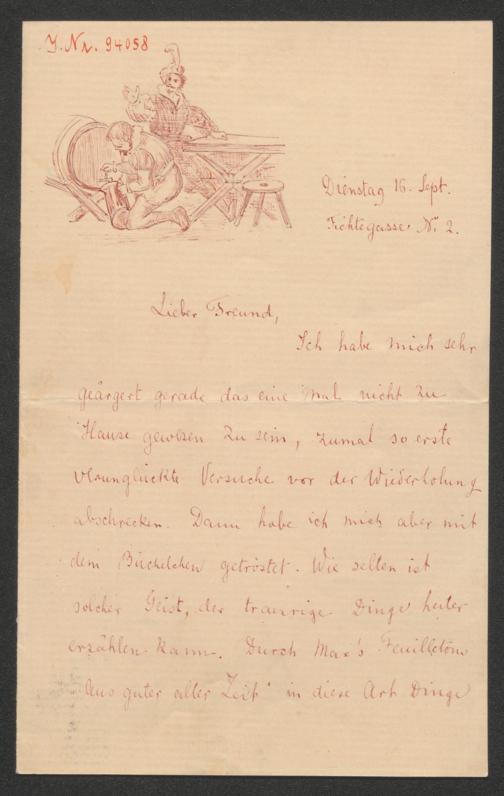 J.Nr. 94058
Dienstag 16. Sept.
Fichtegasse N. 2.
Lieber Freund,
Ich habe mich sehr
geärgert gerade das eine Mal nicht zu
Hause gewesen zu sein, zumal so erste
verunglückte Versuche vor der Wiederholung
abschrecken. Dann habe ich mich aber mit
dem Büchelchen getröstet. Wie selten ist
solcher Geist, der traurige Dinge heiter
erzählen kann. Durch Max's Feuilletons
"Aus guter alter Zeit" in diese Art Dinge